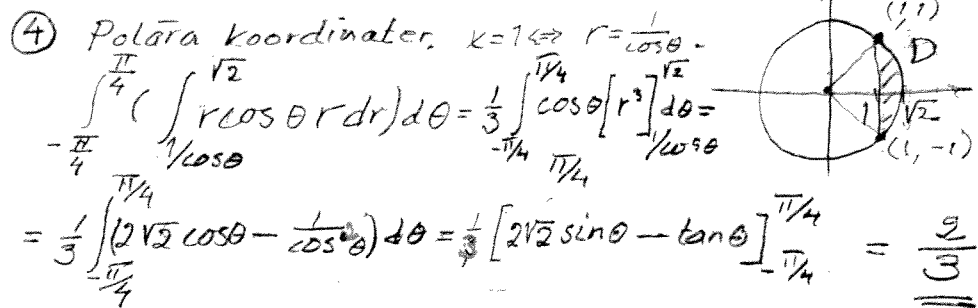 ④ Polära koordinater. x=1 ⇔ r = 1/cosθ.
∫_{-π/4}^{π/4} ( ∫_{1/cosθ}^{√2} r cosθ r dr) dθ = 1/3 ∫_{-π/4}^{π/4} cosθ [r³]_{1/cosθ}^{√2} dθ =
= 1/3 ∫_{-π/4}^{π/4} (2√2 cosθ − 1/cos²θ) dθ = 1/3 [2√2 sinθ − tanθ]_{-π/4}^{π/4} = 2/3
(1,1)
D
1
√2
(1,-1)